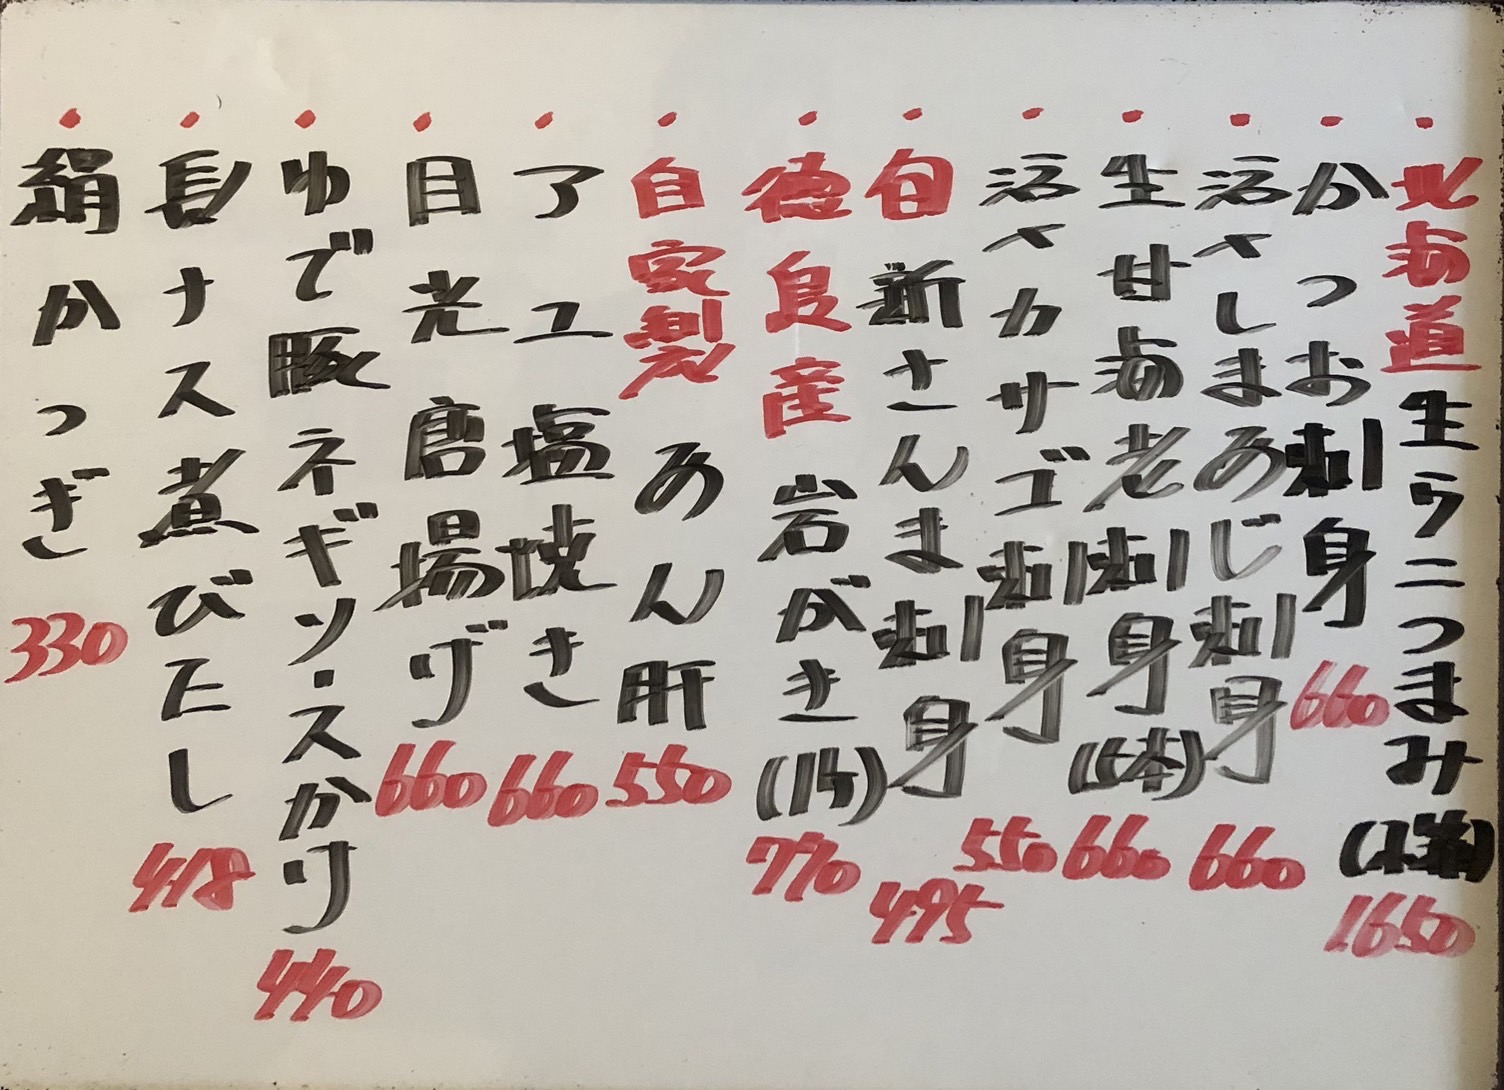 ・北海道生ウニつまみ(1箱)1650
・かつお刺身660
・活〆しまあじ刺身660
・生甘海老刺身(5本)660
・活〆カサゴ刺身550
・旬新さんま刺身495
・徳良産岩がき(1ケ)770
・自家製あん肝550
・アユ塩焼き660
・目光唐揚げ660
・ゆで豚ネギソースかけ440
・長ナス煮びたし418
・絹かつぎ330